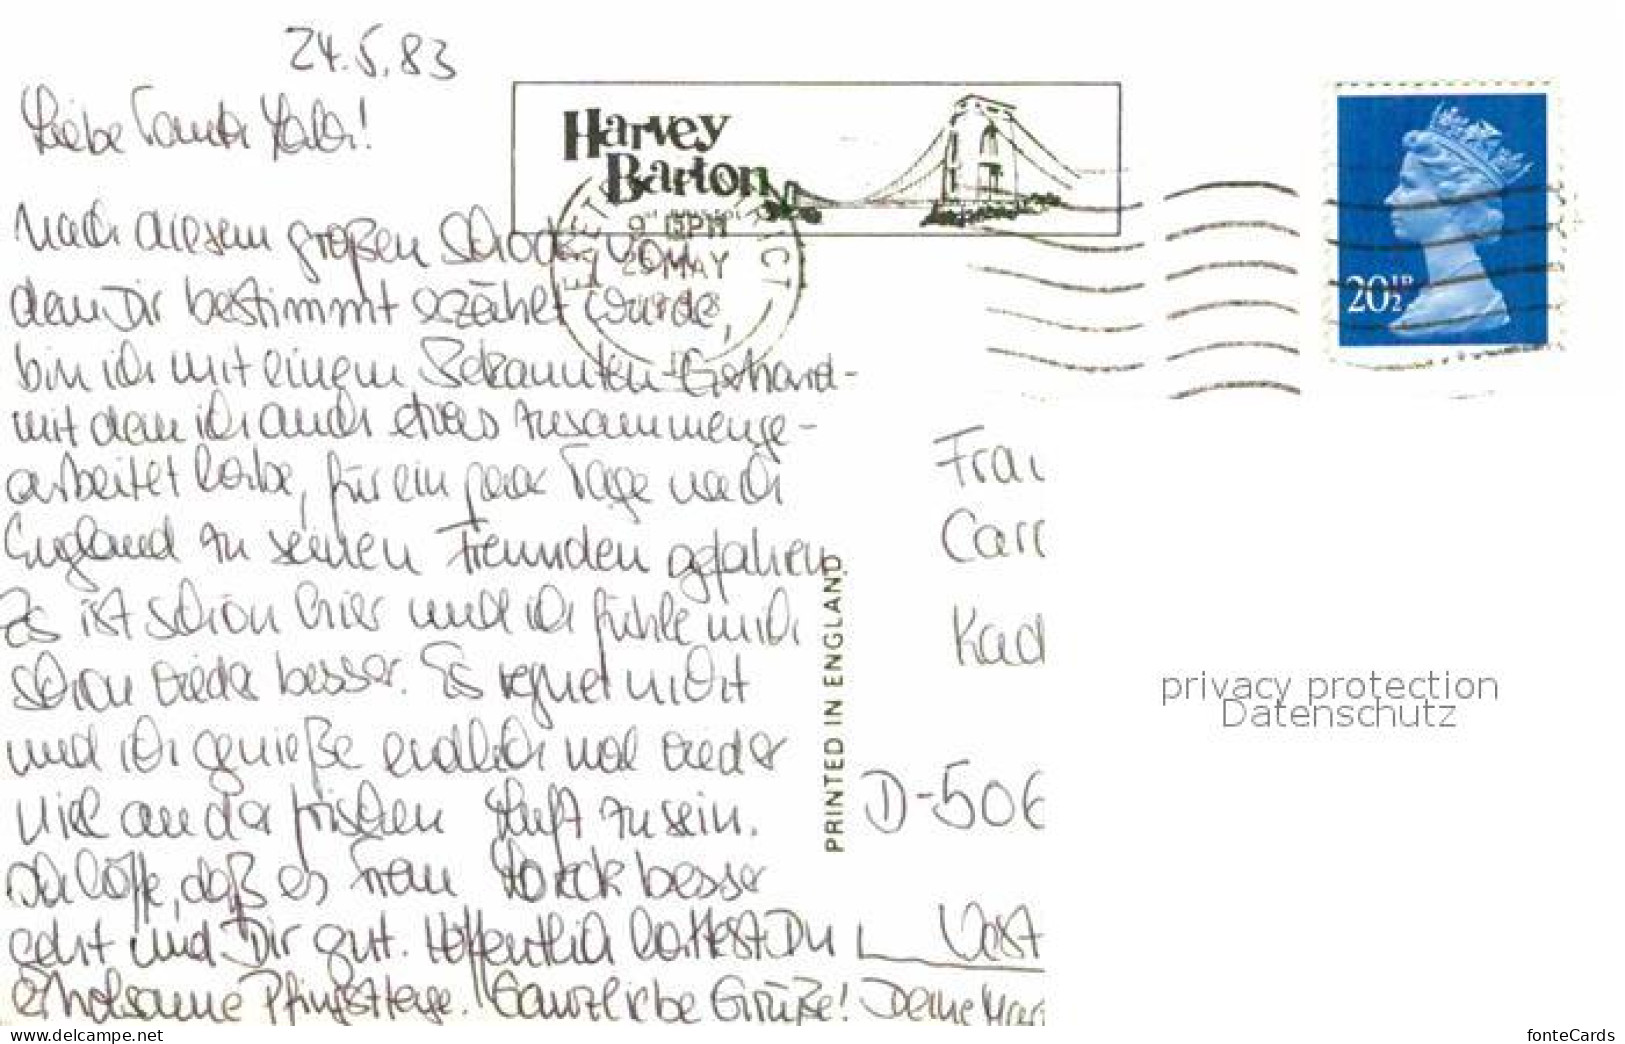 24.5.83
Liebe Tante
Nach diesem großen Schock von
dem Dir bestimmt erzählt wurde,
bin ich mit einem Bekannten - Gerhard -
mit dem ich auch etwas zusammenge-
arbeitet habe, für ein paar Tage nach
England zu seinen Freunden gefahren.
Es ist schön hier und ich fühle mich
schon wieder besser. Es regnet nicht
und ich genieße endlich mal wieder
viel an der frischen Luft zu sein.
Ich hoffe, daß es Frau besser
geht und Dir gut. Hoffentlich hattest Du
erholsame Pfingsttage. Ganz liebe Grüße! Deine
Harvey
Barton
OF BRISTOL
9 15PM
25 MAY
198
20½P
PRINTED IN ENGLAND
Frau
Carr
Kad
D-506
West
privacy protection
Datenschutz
www.delcampe.net
fonteCards